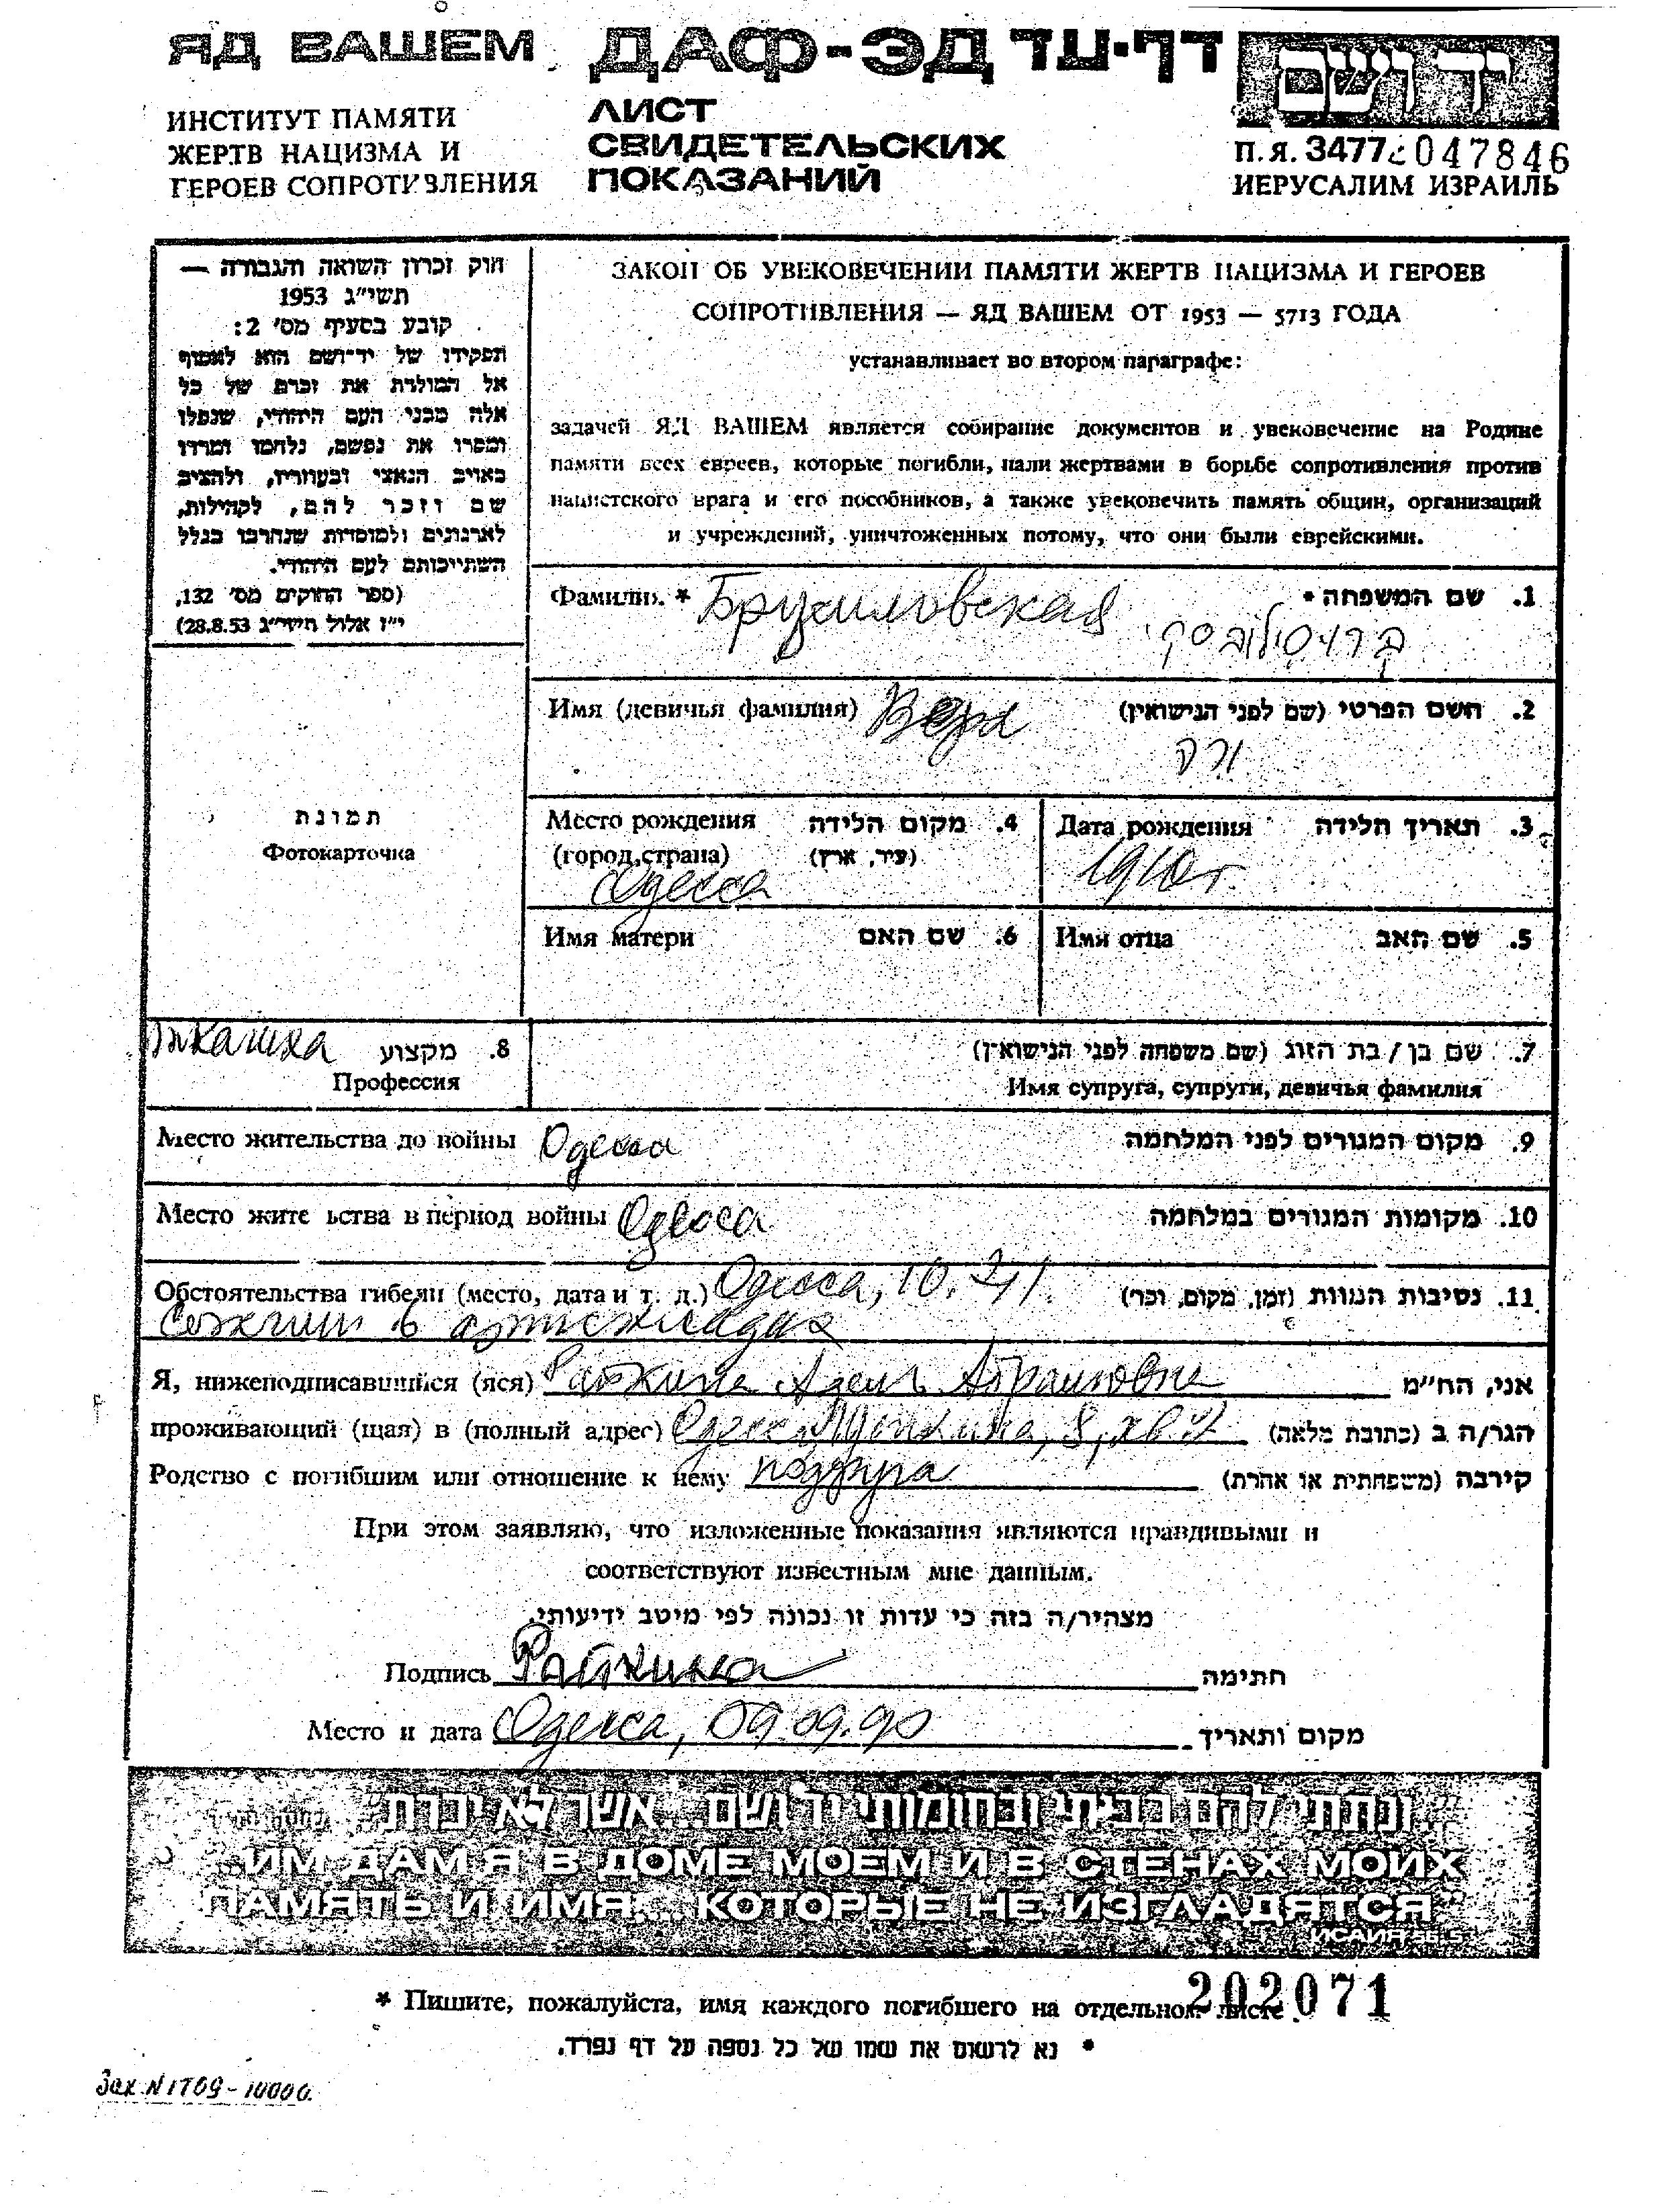 ЯД ВАШЕМ
ДАФ-ЭД דף-עד
יד ושם
ИНСТИТУТ ПАМЯТИ
ЖЕРТВ НАЦИЗМА И
ГЕРОЕВ СОПРОТИВЛЕНИЯ
ЛИСТ
СВИДЕТЕЛЬСКИХ
ПОКАЗАНИЙ
П.Я. 3477 047846
ИЕРУСАЛИМ ИЗРАИЛЬ
חוק זכרון השואה והגבורה —
תשי״ג 1953
קובע בסעיף מס׳ 2:
תפקידו של יד־ושם הוא לאסוף
אל המולדת את זכרם של כל
אלה מבני העם היהודי, שנפלו
ומסרו את נפשם, נלחמו ומרדו
באויב הנאצי ובעוזריו, ולהציב
שם וזכר להם, לקהילות,
לארגונים ולמוסדות שנחרבו בגלל
השתייכותם לעם היהודי.
(ספר החוקים מס׳ 132,
י״ז אלול תשי״ג 28.8.53)
ЗАКОН ОБ УВЕКОВЕЧЕНИИ ПАМЯТИ ЖЕРТВ НАЦИЗМА И ГЕРОЕВ
СОПРОТИВЛЕНИЯ — ЯД ВАШЕМ ОТ 1953 — 5713 ГОДА
устанавливает во втором параграфе:
задачей ЯД ВАШЕМ является собирание документов и увековечение на Родине
памяти всех евреев, которые погибли, пали жертвами в борьбе сопротивления против
нацистского врага и его пособников, а также увековечить память общин, организаций
и учреждений, уничтоженных потому, что они были еврейскими.
Фамилия * Брусиловская 1. שם המשפחה *
ברוסילובסקי
Имя (девичья фамилия) Вера 2. השם הפרטי (שם לפני הנישואין)
ורה
תמונת
Фотокарточка
Место рождения 4. מקום הלידה
(город, страна) (עיר, ארץ)
Одесса
Дата рождения 3. תאריך הלידה
1910г.
Имя матери 6. שם האם
Имя отца 5. שם האב
ткачиха 8. מקצוע
Профессия
7. שם בן / בת הזוג (שם משפחה לפני הנישואין)
Имя супруга, супруги, девичья фамилия
Место жительства до войны Одесса 9. מקום המגורים לפני המלחמה
Место жительства в период войны Одесса 10. מקומות המגורים במלחמה
Обстоятельства гибели (место, дата и т. д.) Одесса, 10.41 11. נסיבות המוות (זמן, מקום, וכו׳)
Сожгли в артскладах
Я, нижеподписавшийся (яся) Райкина Адель Абрамовна אני, הח״מ
проживающий (щая) в (полный адрес) Одесса 8, кв הגר/ה ב (כתובת מלאה)
Родство с погибшим или отношение к нему подруга קירבה (משפחתית או אחרת)
При этом заявляю, что изложенные показания являются правдивыми и
соответствуют известным мне данным.
מצהיר/ה בזה כי עדות זו נכונה לפי מיטב ידיעותי.
Подпись Райкина חתימה
Место и дата Одесса, 09.09.90 מקום ותאריך
״ונתתי להם בביתי ובחומותי יד ושם...אשר לא יכרת״
"ИМ ДАМ Я В ДОМЕ МОЕМ И В СТЕНАХ МОИХ
ПАМЯТЬ И ИМЯ... КОТОРЫЕ НЕ ИЗГЛАДЯТСЯ"
ИСАИЯ 56.5
202071
* Пишите, пожалуйста, имя каждого погибшего на отдельном листе.
* נא לרשום את שמו של כל נספה על דף נפרד.
Зак. N 1709-10000.